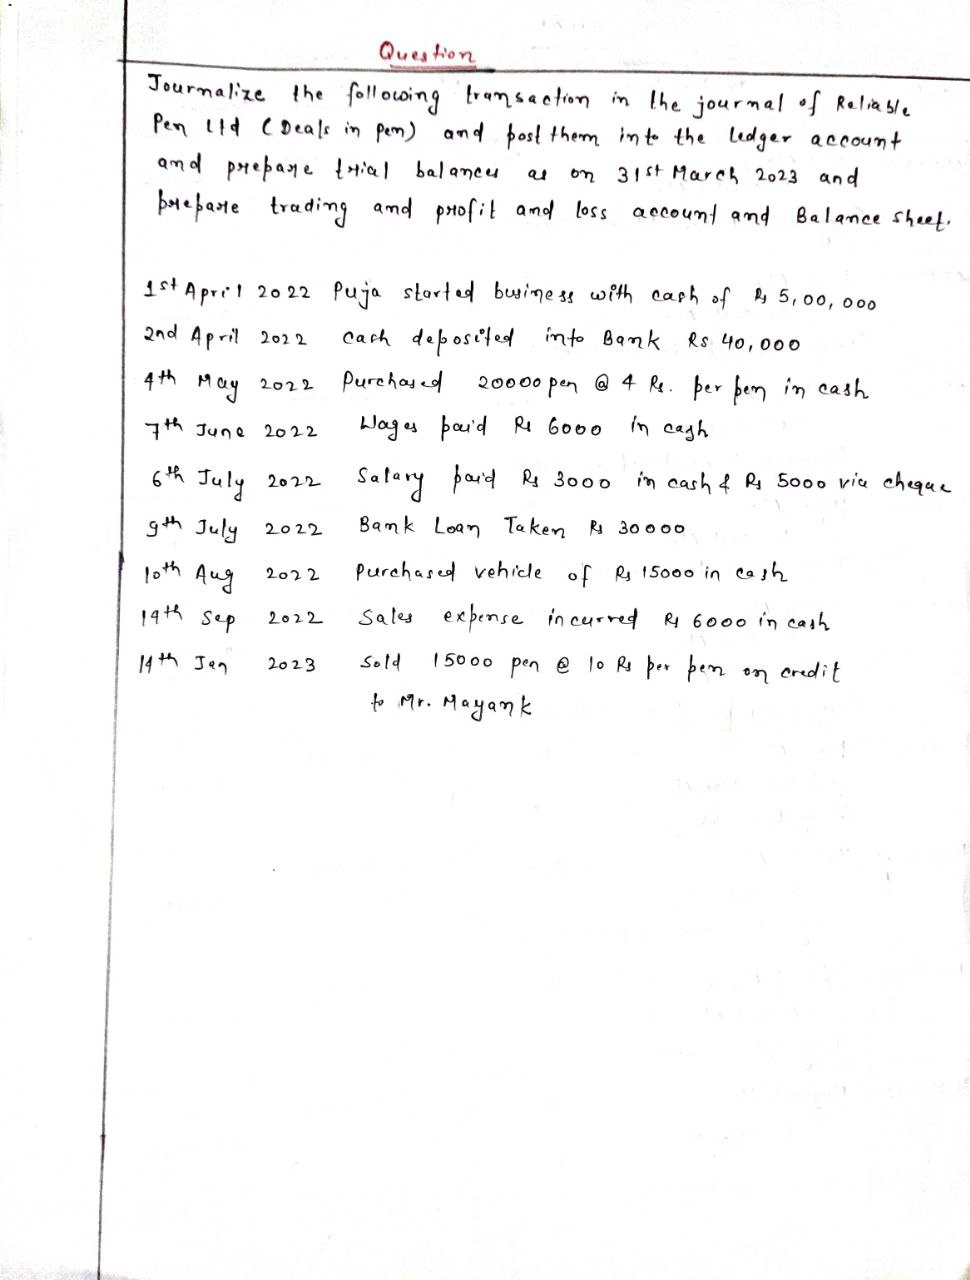 Question
Journalize the following transaction in the journal of Reliable
Pen Ltd (Deals in pen) and post them into the ledger account
and prepare trial balances as on 31st March 2023 and
prepare trading and profit and loss account and Balance sheet.
1st April 2022 Puja started business with cash of Rs 5,00,000
2nd April 2022 cash deposited into Bank Rs 40,000
4th May 2022 Purchased 20000 pen @ 4 Rs. per pen in cash
7th June 2022 Wages paid Rs 6000 in cash
6th July 2022 Salary paid Rs 3000 in cash & Rs 5000 via cheque
9th July 2022 Bank Loan Taken Rs 30000
10th Aug 2022 Purchased vehicle of Rs 15000 in cash
14th Sep 2022 Sales expense incurred Rs 6000 in cash
14th Jan 2023 Sold 15000 pen @ 10 Rs per pen on credit
to Mr. Mayank